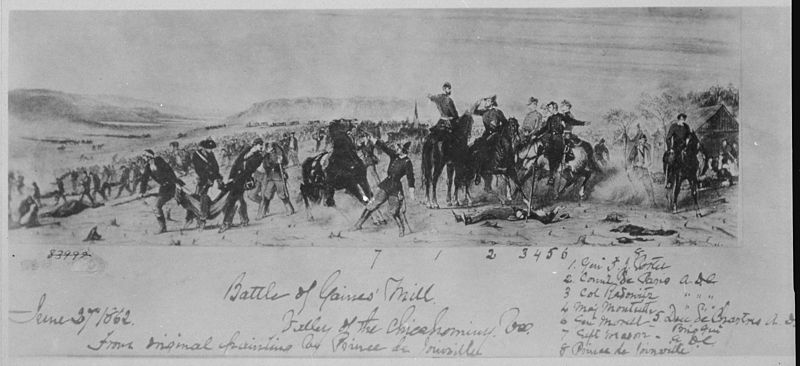 83992
7 1 2 3 4 5 6 8
Battle of Gaines' Mill.
June 27 1862.
Valley of the Chicahominy, Va.
From original painting by Prince de Joinville
1. Gen F. J. Porter
2. Comte de Paris A.D.C.
3 Col Radowitz " " "
4 Maj Monteith " " "
6 Gen Morell - 5 Duc de Chartres A.D.C.
7 Capt Mason -
8 Prince de Joinville